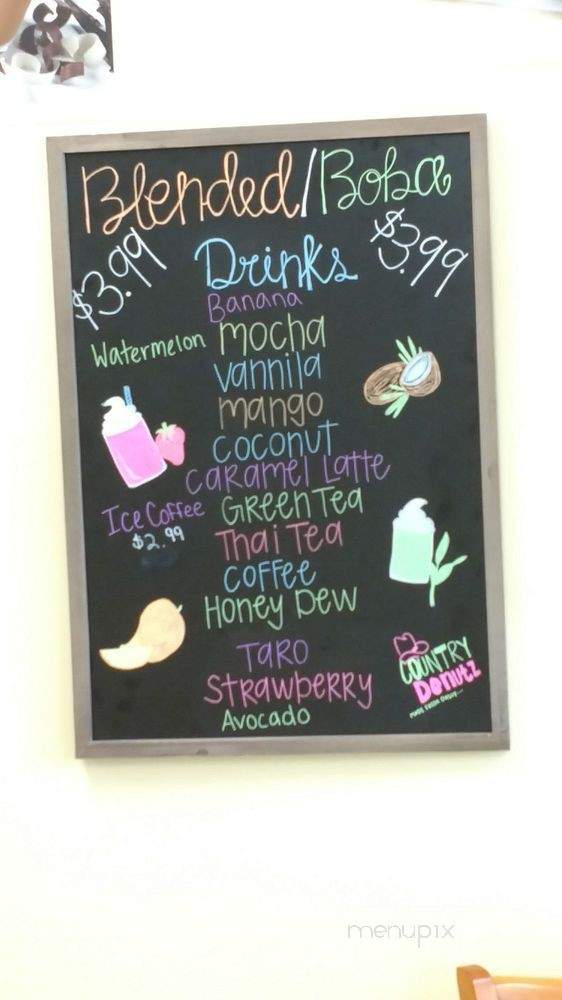 Blended/Boba
$3.99
$3.99
Drinks
Banana
Watermelon
mocha
vannila
mango
coconut
caramel Latte
Ice Coffee
$2.99
Green Tea
Thai Tea
coffee
Honey Dew
Taro
Strawberry
Avocado
Country
Donutz
menupix